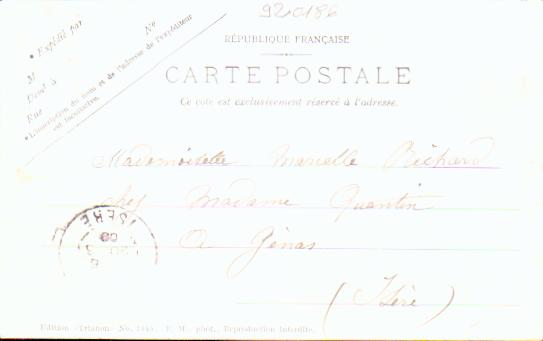 920186
RÉPUBLIQUE FRANÇAISE
CARTE POSTALE
Ce côté est exclusivement réservé à l'adresse.
Expédié par
No
M
Demt à
Rue
L'inscription du nom et de l'adresse de l'expéditeur
est facultative.
Mademoiselle Marcelle Richard
chez Madame Quantin
A Génas
(Isère)
ISERE
Edition «Trianon» No. P. M., phot., Reproduction interdite.